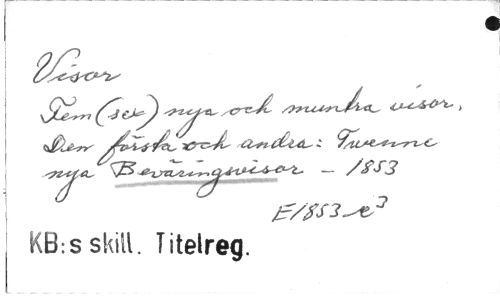 Visor
Fem (sex) nya och muntra visor.
Den första och andra: Twenne
nya Beväringsvisor - 1853
E1853 e³
KB:s skill. Titelreg.